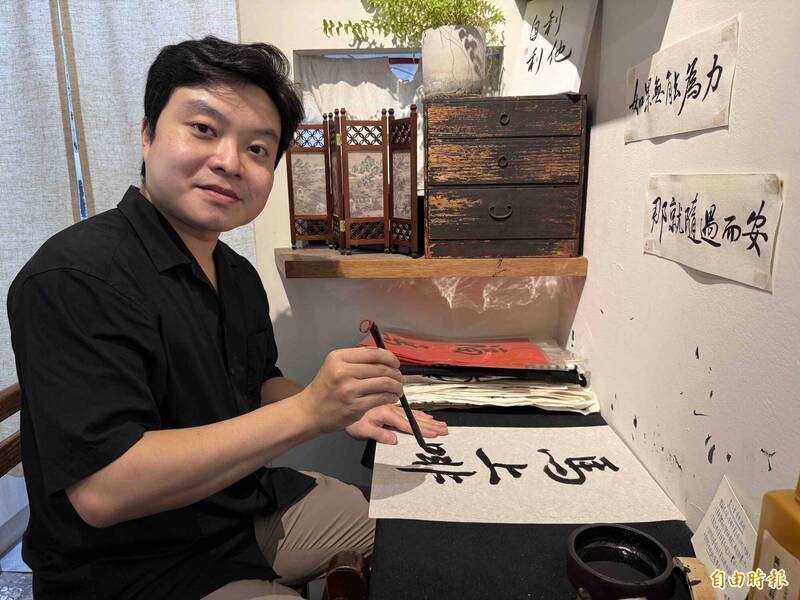 自利
利他
如果無能為力
那就隨遇而安
馬上啡
自由時報